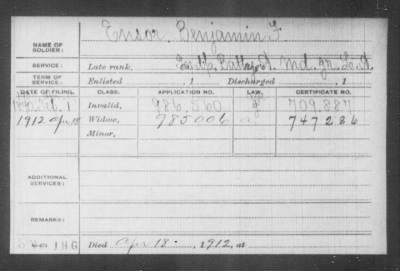 Ensor, Benjamin F.
NAME OF SOLDIER:
SERVICE: Late rank, Batty A Md.
TERM OF SERVICE: Enlisted , 1 Discharged , 1
DATE OF FILING. CLASS. APPLICATION NO. LAW. CERTIFICATE NO.
1 Invalid, 986,560 709.887
1912 Apr 18 Widow, 985006 747286
Minor,
ADDITIONAL SERVICES:
REMARKS:
Died Apr 18 , 1912, at